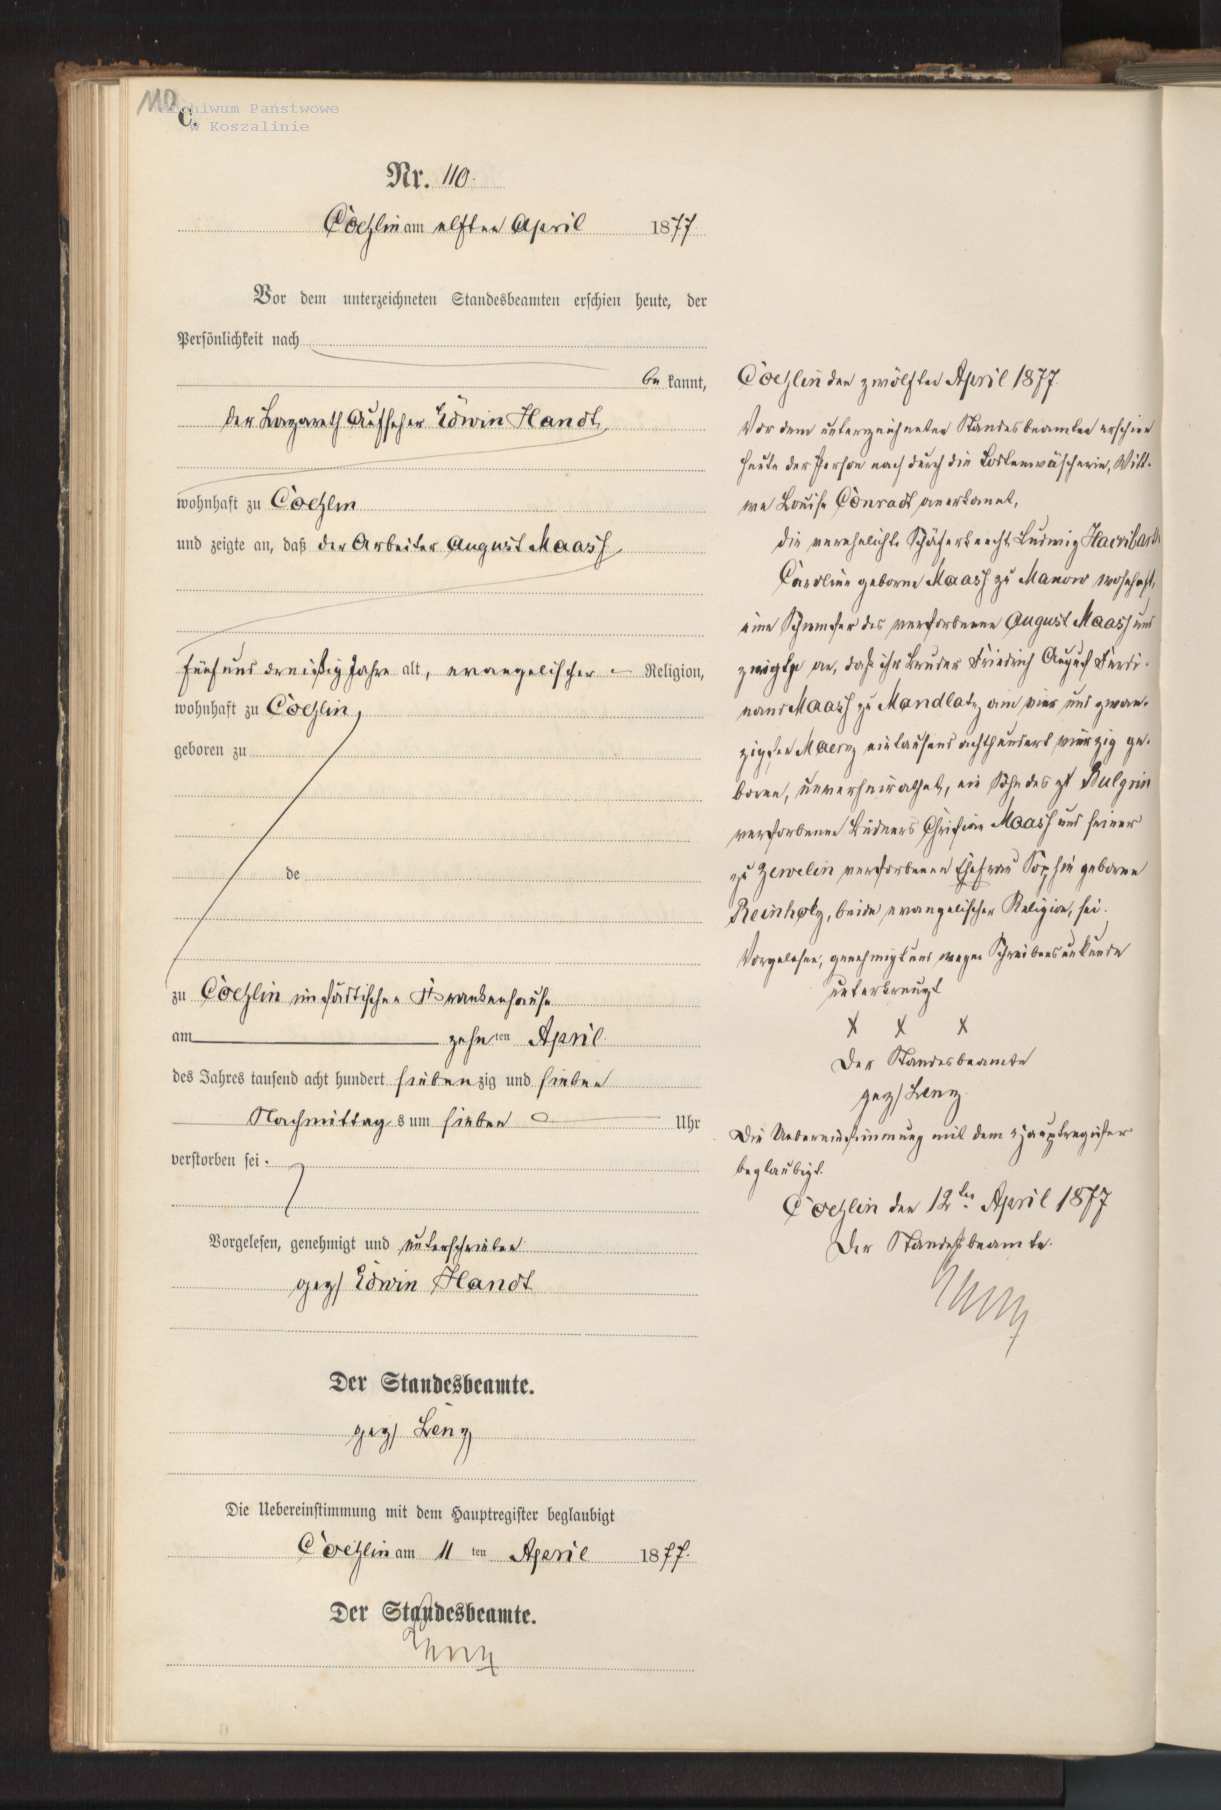 110
Archiwum Państwowe
w Koszalinie
C.
Nr. 110.
Coeslin am elften April 1877.
Vor dem unterzeichneten Standesbeamten erschien heute, der
Persönlichkeit nach
bekannt,
der Lazareth Aufseher Edwin Handt,
wohnhaft zu Coeslin
und zeigte an, daß der Arbeiter August Maass,
fünf und dreißig Jahre alt, evangelischer Religion,
wohnhaft zu Coeslin,
geboren zu
de
zu Coeslin im städtischen Krankenhause
am zehnten April
des Jahres tausend acht hundert siebenzig und sieben
Nachmittags um sieben Uhr
verstorben sei.
Vorgelesen, genehmigt und unterschrieben
gez/ Edwin Handt
Der Standesbeamte.
gez/ Lenz
Die Uebereinstimmung mit dem Hauptregister beglaubigt
Coeslin am 11ten April 1877.
Der Standesbeamte.
Lenz
Coeslin den zwölften April 1877.
Vor dem unterzeichneten Standesbeamten erschien
heute der Person nach durch die Wittwe
we Louise Conradt anerkannt,
die verehelichte Schäferknecht Ludwig
Caroline geborne Maass zu Manow wohnhaft,
eine Schwester des verstorbenen August Maass und
zeigte an, daß ihr Bruder Friedrich August Ferdi-
nand Maass zu Mandlatz am vier und zwan-
zigsten Maerz eintausend achthundert vierzig ge-
boren, unverheirathet, ein Sohn des zu Bulgrin
verstorbenen Büdners Christian Maass und seiner
zu Zewelin verstorbenen Ehefrau Sophie geborne
Reinholz, beide evangelischer Religion, sei.
Vorgelesen, genehmigt und wegen Schreibensunkunde
unterkreuzt
X X X
Der Standesbeamte
gez/ Lenz
Die Uebereinstimmung mit dem Hauptregister
beglaubigt.
Coeslin den 12ten April 1877
Der Standesbeamte.
Lenz